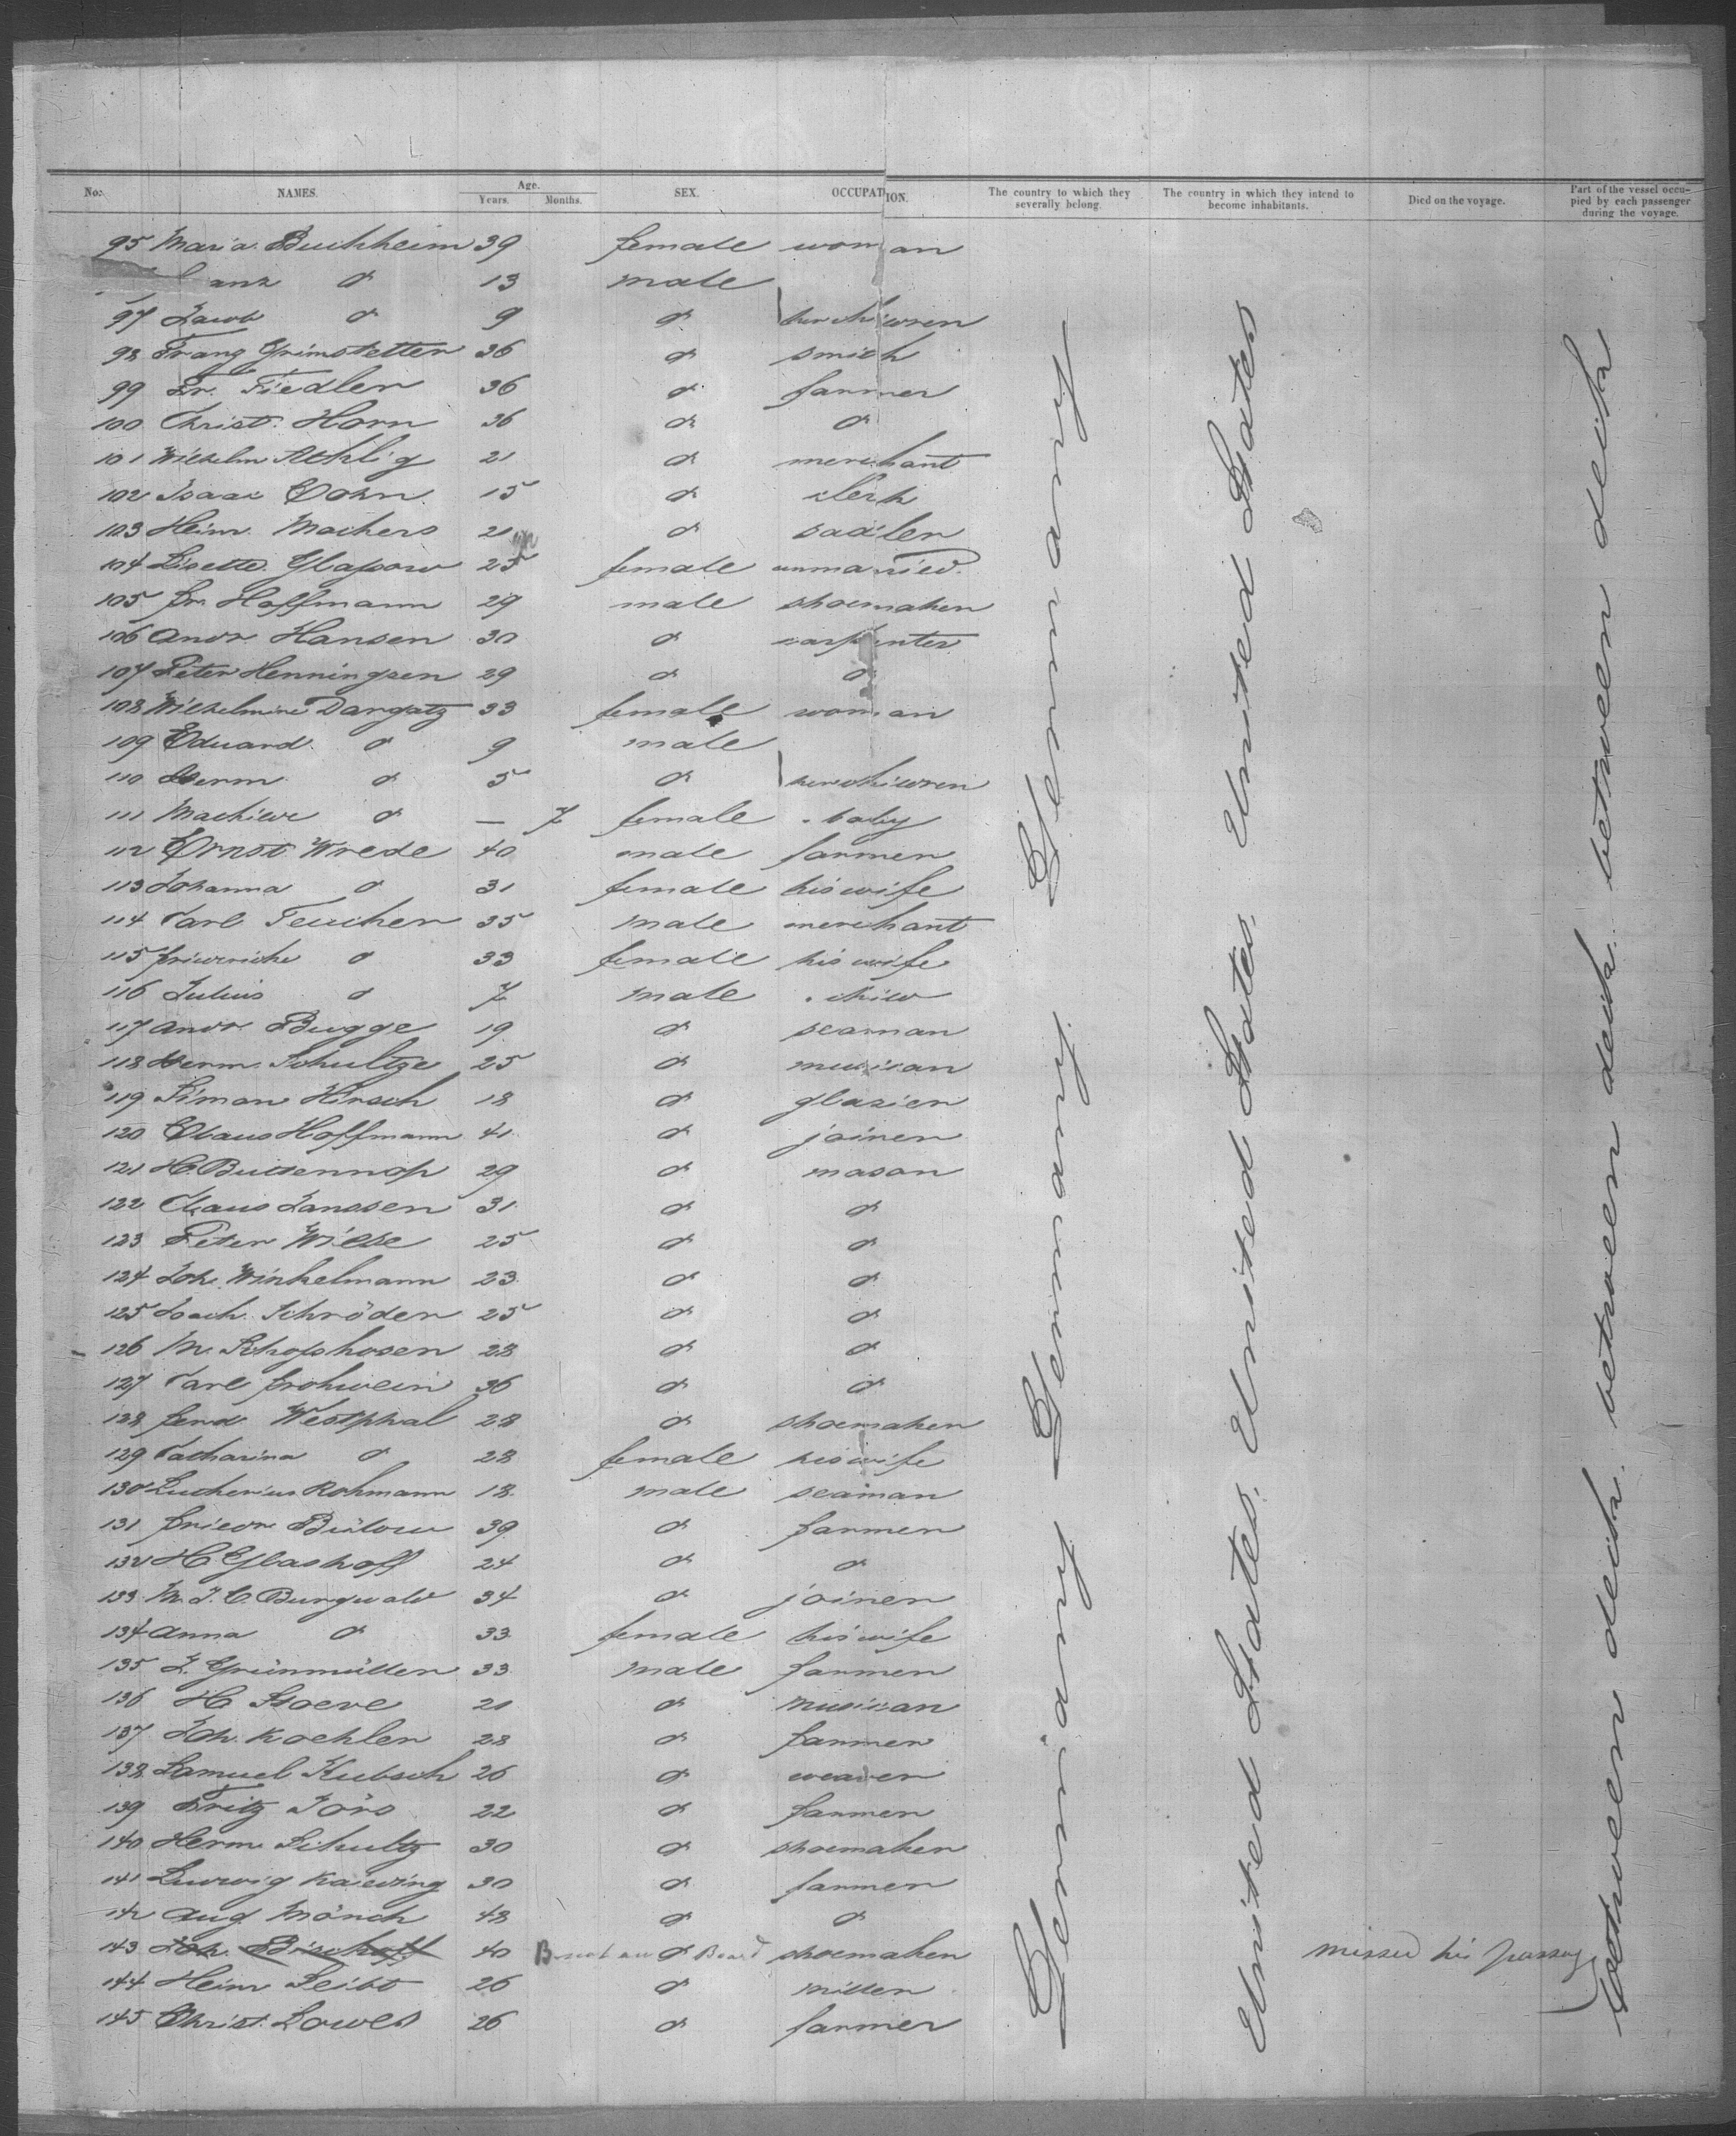 No. NAMES. Age. Years. Months. SEX. OCCUPATION. The country to which they severally belong. The country in which they intend to become inhabitants. Died on the voyage. Part of the vessel occupied by each passenger during the voyage.
95 Maria Buchheim 39 female woman
anz d 13 male
97 Jacob d 9 d her children
98 Franz Grimstetter 36 d smith
99 Fr. Fiedler 36 d farmer
100 Christ. Horn 36 d d
101 Wilhelm 21 d merchant
102 Isaac Cohn 15 d clerk
103 Heinr. Machers 21 d sadler
104 Lisette Glassow 25 female unmarried.
105 Fr. Hoffmann 29 male shoemaker
106 Andr Hansen 30 d carpenter
107 Peter Henningsen 29 d d
108 Wilhelmine Dargatz 33 female woman
109 Eduard d 9 male
110 Herm d 5 d her children
111 Mathilde d — 7 female baby
112 Ernst Wrede 40 male farmer
113 Johanna d 31 female his wife
114 Carl Teucher 35 male merchant
115 Friederike d 33 female his wife
116 Julius d 7 male child
117 Andr Bugge 19 d seaman
118 Herm. Schultze 25 d musican
119 Siman Hirsch 18 d glazier
120 Claus Hoffmann 41 d joiner
121 H. Buttennop 29 d mason
122 Claus Janssen 31 d d
123 Peter Wiese 25 d d
124 Joh. Winkelmann 23 d d
125 Joach. Schröder 25 d d
126 M. 28 d d
127 Carl Frohwein 36 d d
128 Ferd Westphal 28 d shoemaker
129 Catharina d 28 female his wife
130 Rohmann 18 male seaman
131 Friedr Bülow 39 d farmer
132 H Glashoff 24 d d
133 M. J. C. Burgwald 34 d joiner
134 Anna d 33 female his wife
135 J. Grünmüller 33 male farmer
136 H 21 d musican
137 Joh. Koehler 28 d farmer
138 Samuel Kubsch 26 d weaver
139 Fritz Jörs 22 d farmer
140 Herm Schultz 30 d shoemaker
141 Ludwig 30 d farmer
142 Aug Mönch 48 d d
143 Joh. Bischoff 40 not on d Board shoemaker missed his passag
144 Heinr Seibt 26 d miller
145 Christ. Lowes 26 d farmer
Germany Germany Germany
United States. United States. United States
between deck. between deck. between deck